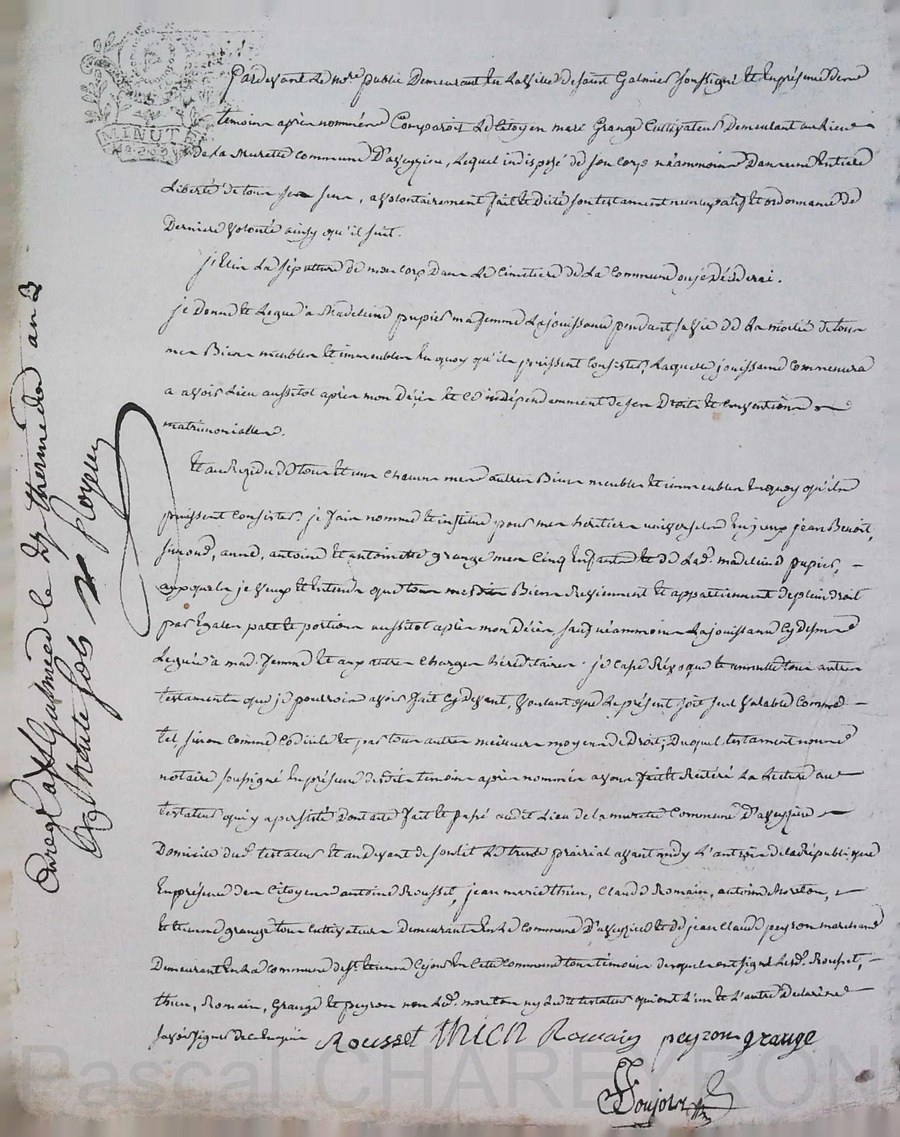 MINUT
Pardevant le no.re public Demeurant en la ville de saint Galmier soussigné et en présence des
temoins après nommés Comparoit le Citoyen mare Grange Cultivateur Demeurant au lieu
de la murette commune D'aveyzieu, lequel indisposé de son corps néammoins Dans une entiere
Liberté de tous ses sens, a volontairement fait et dicté son testament nuncupatif et ordonnance de
Derniere volonté ainsy qu'il suit.
j'Elis la sépulture de mon corp Dans le Cimetiere de la Commune ou je décéderai.
je Donne et Legue a Madeleine pupier ma femme La jouissance pendant sa vie de la moitié de tous
mes Biens meubles et immeubles en quoy qu'ils puissent Consister, laquelle jouissance commencera
a avoir Lieu aussitot après mon Décès et ce indépendamment de ses Droits et Conventions
matrimonialles.
Et au Rezidu de tous et uns chacuns mes autres Biens meubles et immeubles en quoy qu'ils
puissent Consister je fais nomme et institue pour mes héritiers universels en jceux jean Benoit,
simone, anne, antoine et antoinette grange mes Cinq Enfants et de lad. madeleine pupier,
auxquels je veux et entends que tous mesdits Biens Reviennent et appartiennent de plein droit
par Egales part et portions aussitot après mon Décès sauf néammoins La jouissance Cy dessus
Leguée a mad. femme et aux autres charges héréditaires. je casse Révoque et annulle tous autres
testaments que je pourrois avoir fait Cy devant, voulant que le présent soit seul valable comme
tel, sinon comme Codicile et par tous autres meilleurs moyens de Droit; Duquel testament nous
notaire soussigné en présence desdits temoins après nommés avons fait et Réitéré La Lecture au
testateur qui y a persisté dont acte fait et passé audit Lieu de la murette Commune D'aveyzieu
Domicile dud. testateur et au devant de son lit le trente prairial avant midy L'an trois de la République
en présence des Citoyens antoine Rousset, jean marie thien, Claude Romain, antoine moreton,
et etienne grange tous Cultivateurs Demeurants en la Commune D'aveyzieu et de jean Claude peyron marchand
Demeurant en la commune de St. Etienne Cejour en cete Commune tous témoins desquels ont signé lesd. Rousset,
thien, Romain, Grange et peyron non led. moreton ny ledit testateur qui ont L'un et L'autre Déclaré ne
savoir signer de ce Enquis
Rousset thien Romain peyron grange
Enregé a St Galmier le 27 thermidor an 3
trente sols
Royeur
Pascal CHAREYRON